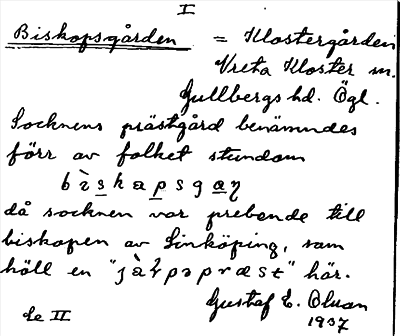 I
Biskopsgården = Klostergården
Vreta Kloster sn.
Gullbergs hd. Ögl.
Socknens prästgård benämndes
förr av folket stundom
bìskapsgaŋ
då socknen var prebende till
biskopen av Linköping, som
höll en "präst" här.
Gustaf E. Olsson
1937
Le II